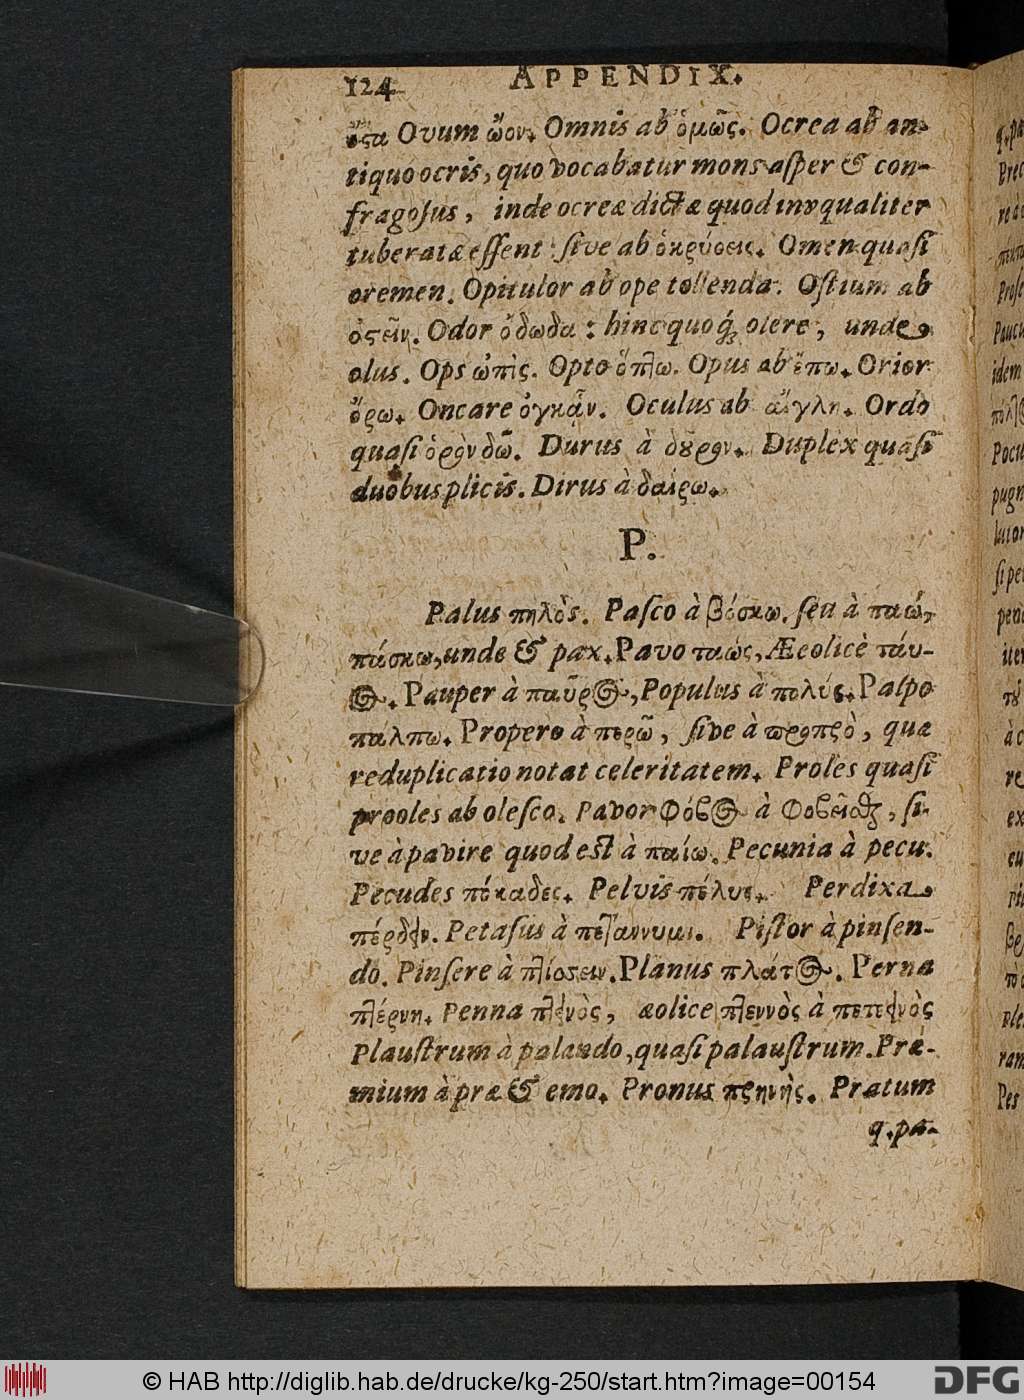 124 APPENDIX.
ὄϛα Ovum ὦον. Omnis ab ὁμῶς. Ocrea ab an-
tiquo ocris, quo vocabatur mons asper & con-
fragosus, inde ocreæ dictæ quod inæqualiter
tuberatæ essent sive ab ὀκρύσεις. Omen quasi
oremen. Opitulor ab ope tollenda. Ostium ab
Odor ὄδωδα: hinc quoq́; olere, unde
olus. Ops ὠπὶς. Opto ὄπτω. Opus ab ἕπω. Orior
ὄρω. Oncare ὀγκᾷν. Oculus ab αἴγλη. Ordo
quasi ὀρθὸν δῶ. Durus à δοῦρον. Duplex quasi
duobus plicis. Dirus à δαίρω.
P.
Palus πηλὸς. Pasco à βόσκω. seu à παώ,
πάσκω, unde & pax. Pavo ταὼς, Æeolicè τάυ-
ος. Pauper à παῦρος, Populus à πολύς. Palpo
πάλπω. Propero à περῶ, sive à προπρὸ, quæ
reduplicatio notat celeritatem. Proles quasi
prooles ab olesco. Pavor φόβος à φοβεῖσθαι, si-
ve à pavire quod est à παίω. Pecunia à pecu.
Pecudes πέκαδες. Pelvis πέλυς. Perdix à
πέρδην. Petasus à πετάννυμι. Pistor à pinsen-
do. Pinsere à πτίσσειν. Planus πλάτος. Perna
πτέρνη. Penna πτηνὸς, æolice πτεννὸς à πετεηνὸς
Plaustrum à palando, quasi palaustrum. Præ-
mium à præ & emo. Pronus πρηνὴς. Pratum
q. pa-
© HAB http://diglib.hab.de/drucke/kg-250/start.htm?image=00154
DFG